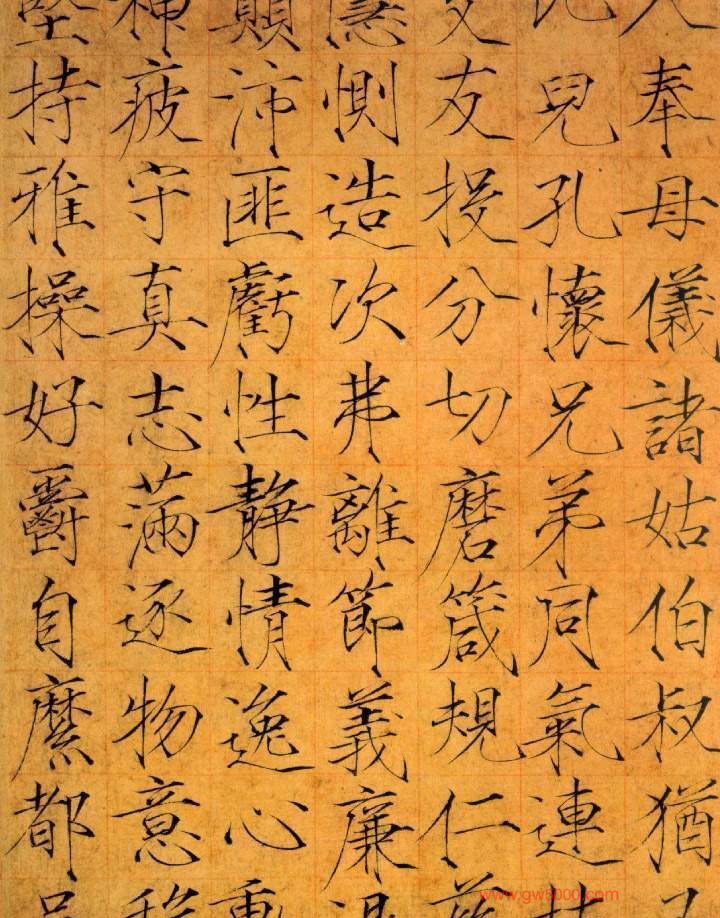 入奉母儀諸姑伯叔猶
比兒孔懷兄弟同氣連
交友投分切磨箴規仁慈
隱惻造次弗離節義廉退
顛沛匪虧性靜情逸心動
神疲守真志滿逐物意移
堅持雅操好爵自縻都
www.gw5000.com